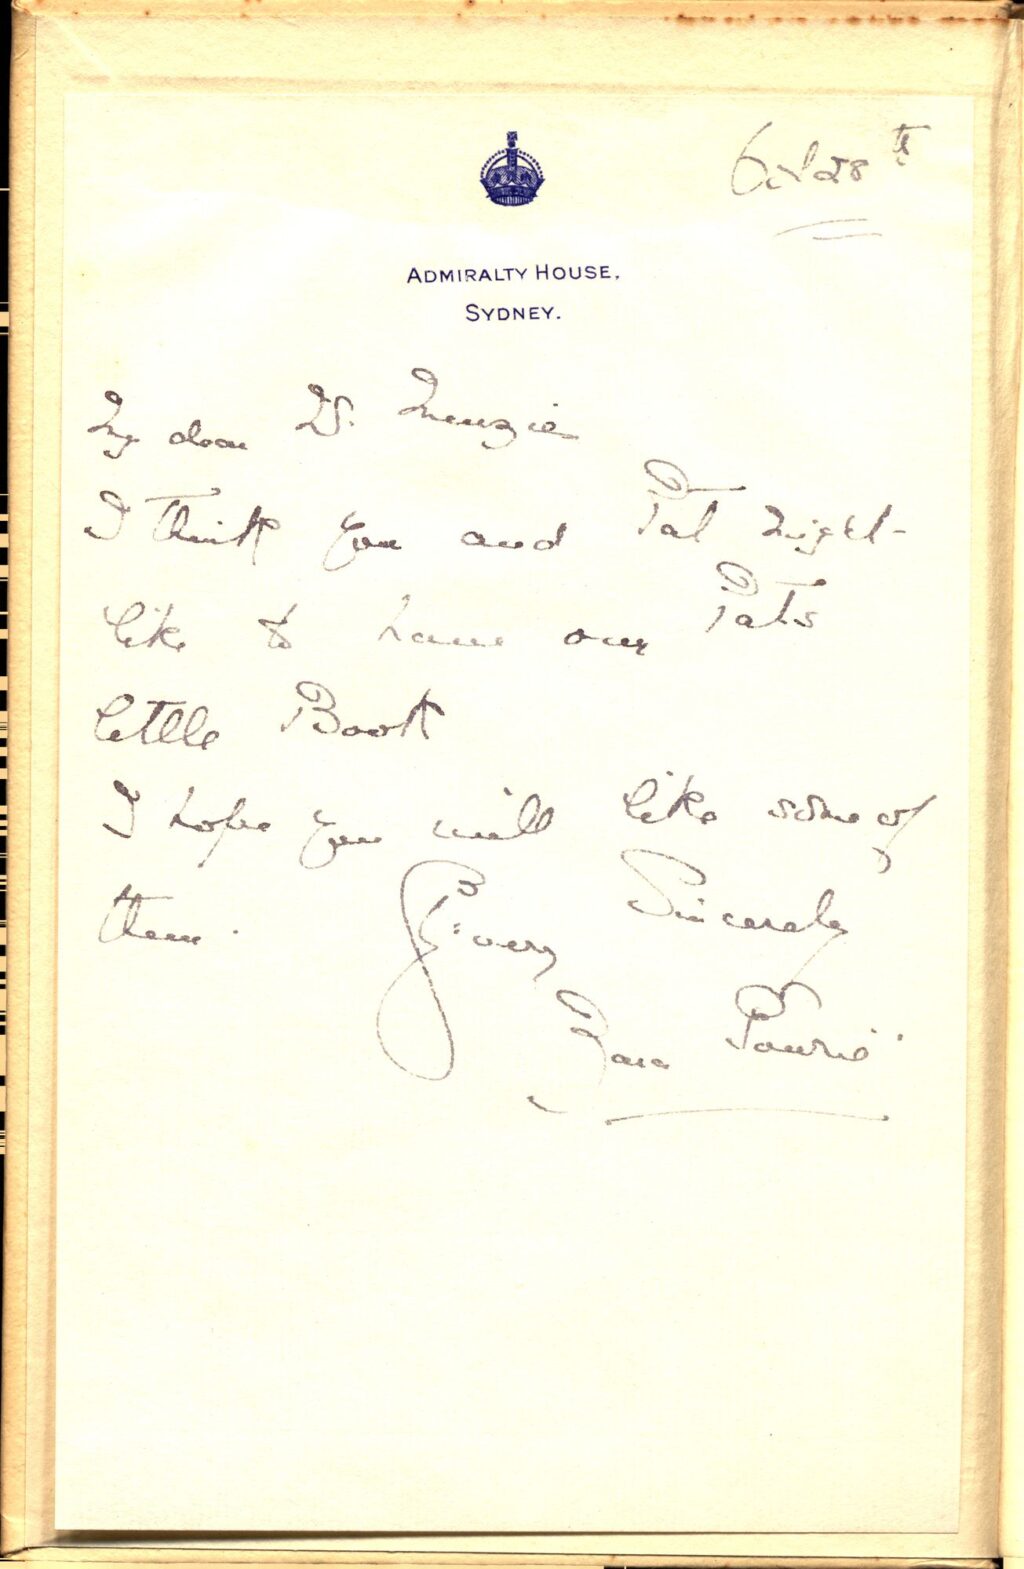 Oct 28th
ADMIRALTY HOUSE,
SYDNEY.
My dear Mr. Menzies
I think you and Pat might
like to have our Pat's
little Book
I hope you will like some of
them.
Yours very Sincerely
Zara Gowrie